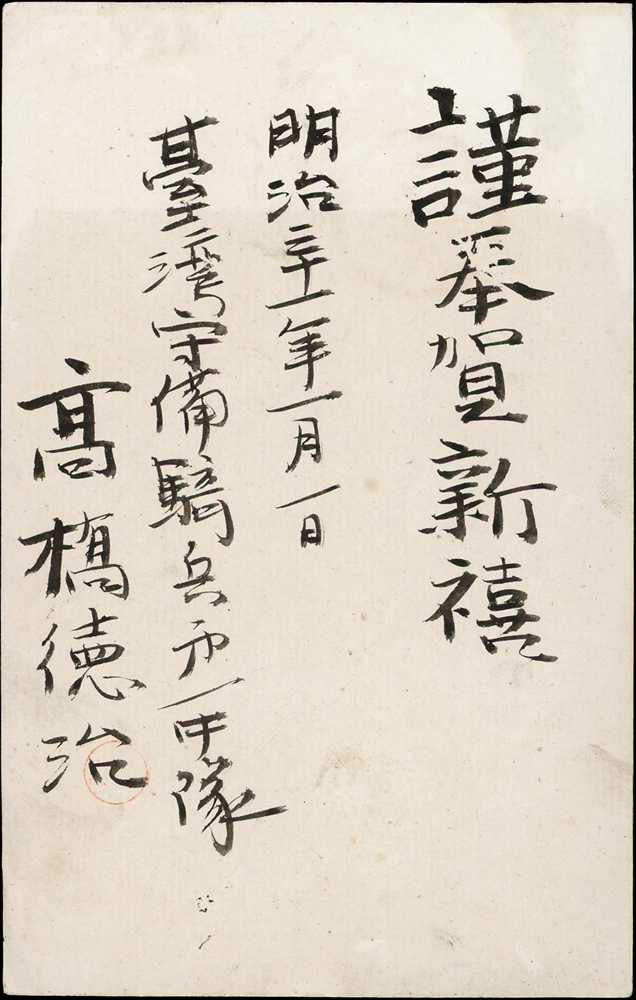 謹奉賀新禧
明治三十一年一月一日
臺湾守備騎兵㐧一中隊
髙橋徳治